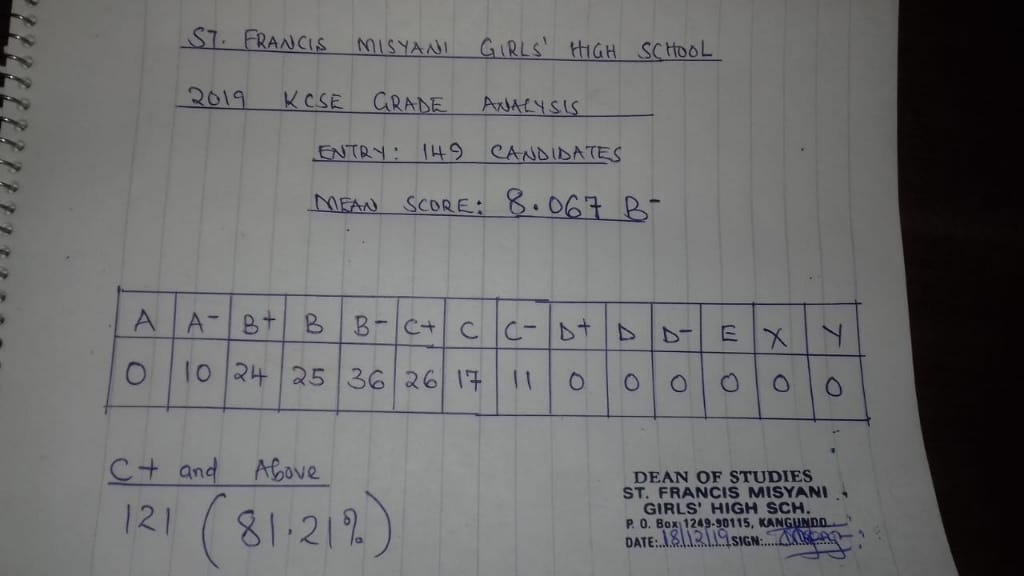 ST. FRANCIS MISYANI GIRLS' HIGH SCHOOL
2019 KCSE GRADE ANALYSIS
ENTRY: 149 CANDIDATES
MEAN SCORE: 8.067 B-
A A- B+ B B- C+ C C- D+ D D- E X Y
0 10 24 25 36 26 17 11 0 0 0 0 0 0
C+ and Above
121 (81.21%)
DEAN OF STUDIES
ST. FRANCIS MISYANI
GIRLS' HIGH SCH.
P. O. Box 1249-90115, KANGUNDO
DATE: 18/12/19 SIGN: